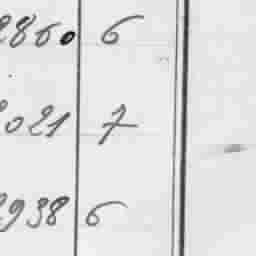 286. 6
2021 7
2938 6